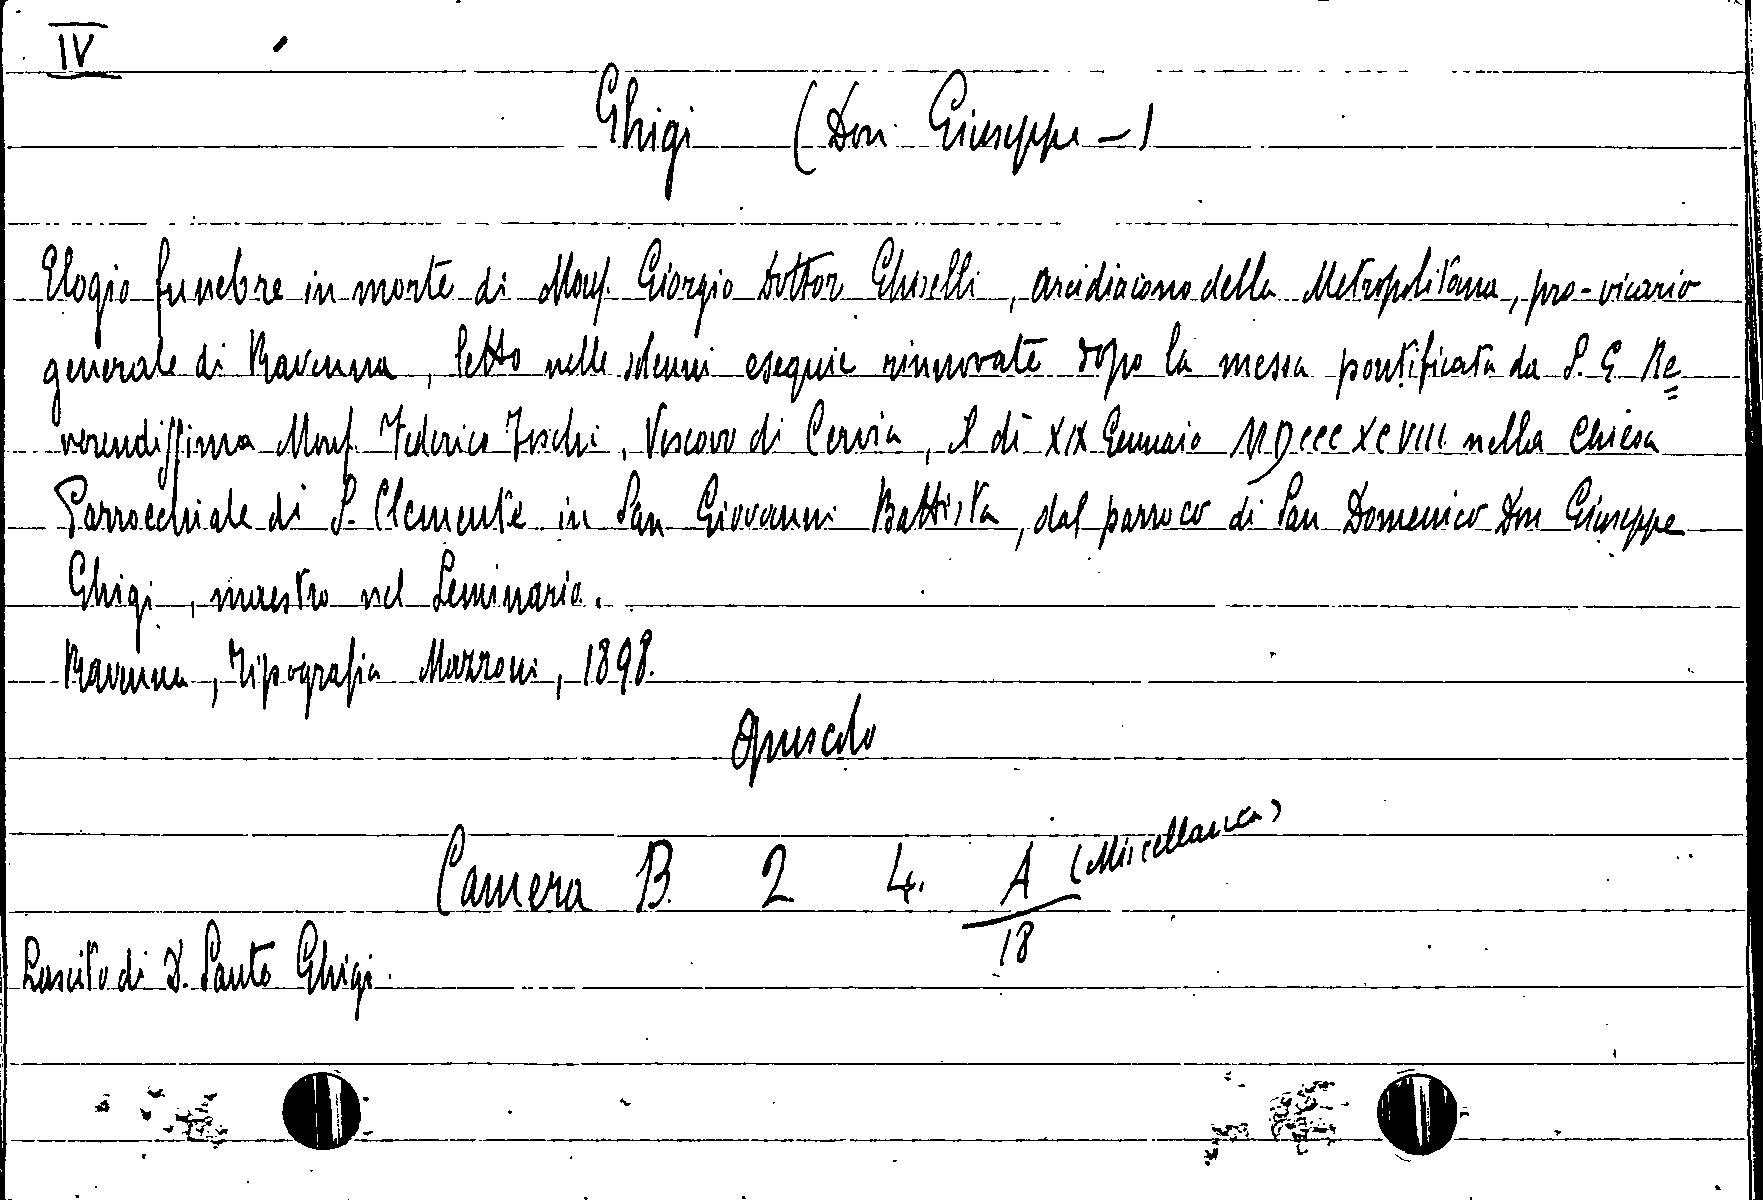 IV
Ghigi (Don Giuseppe -)
Elogio funebre in morte di Mons. Giorgio Dottor Ghiselli, arcidiacono della Metropolitana, pro-vicario
generale di Ravenna, letto nelle solenni esequie rinnovate dopo la messa pontificata da S. E. Re=
verendissima Mons. Federico Foschi, Vescovo di Cervia, il dì XIX Gennaio MDCCCXCVIII nella Chiesa
Parrocchiale di S. Clemente in San Giovanni Battista, dal parroco di San Domenico Don Giuseppe
Ghigi, maestro nel Seminario.
Ravenna, Tipografia Mazzoni, 1898.
Opuscolo
Camera B. 2 4. A (Miscellanea)
18
Lascito di D. Santo Ghigi.